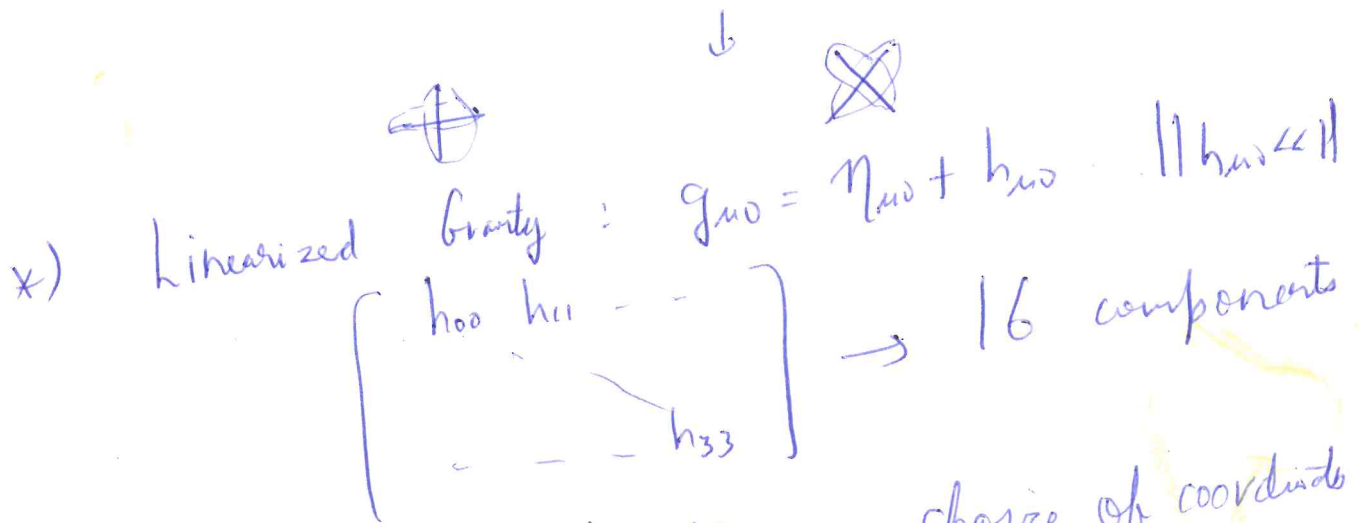 *) Linearized Gravity : gμν = ημν + hμν ||hμν<<||
h00 h11 - -
→ 16 components
h33
- - -
choice of coordinate